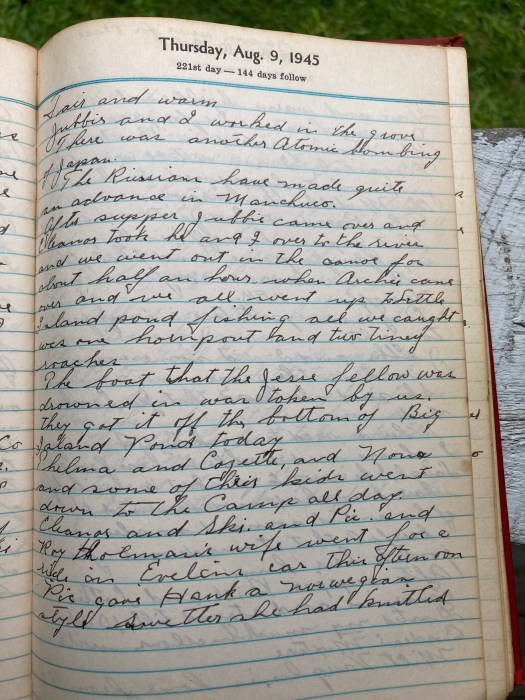 Thursday, Aug. 9, 1945
221st day — 144 days follow
Fair and warm
Jubbie and I worked in the grove
There was another Atomic bombing
of Japan.
The Russians have made quite
an advance in Manchuco.
After supper Jubbie came over and
Eleanor took he and I over to the river
and we went out in the canoe for
about half an hour when Archie came
over and we all went up to little
Island pond fishing all we caught
was one hornpout and two tiney
roaches
The boat that the Jesse fellow was
drowned in was taken by us.
they got it off the bottom of Big
Island Pond today
Thelma and and Nona
and some of their kids went
down to the Camp all day.
Eleanor and Ski and Pie and
Roy wife went for a
ride in Evelins car this afternoon
Pie gave Hank a norwegian
style swetter she had knitted